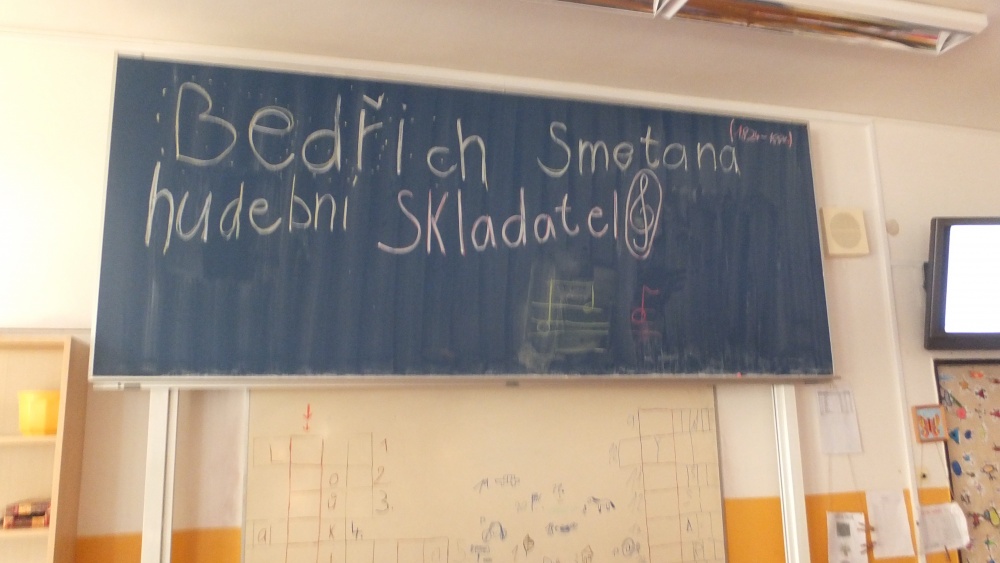 Bedřich Smetana (1824-1884)
hudební skladatel
1
2
3